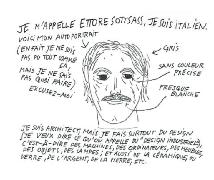 JE M'APPELLE ETTORE SOTTSASS, JE SUIS ITALIEN.
VOICI MON AUTOPORTRAIT
(EN FAIT JE NE SUIS
PAS DU TOUT COMME
ÇA,
MAIS JE NE SAIS
PAS QUOI FAIRE)
EXCUSEZ-MOI
GRIS
SANS COULEUR
PRÉCISE
PRESQUE
BLANCHE
JE SUIS ARCHITECTE, MAIS JE FAIS SURTOUT DU DESIGN
(JE VEUX DIRE CE QU'ON APPELLE DU "DESIGN INDUSTRIEL",
C'EST-À-DIRE DES MACHINES, DES ORDINATEURS, DES MEUBLES,
DES OBJETS, DES LAMPES, ET AUSSI DE LA CÉRAMIQUE, DU
VERRE, DE L'ARGENT, DE LA PIERRE, ETC.